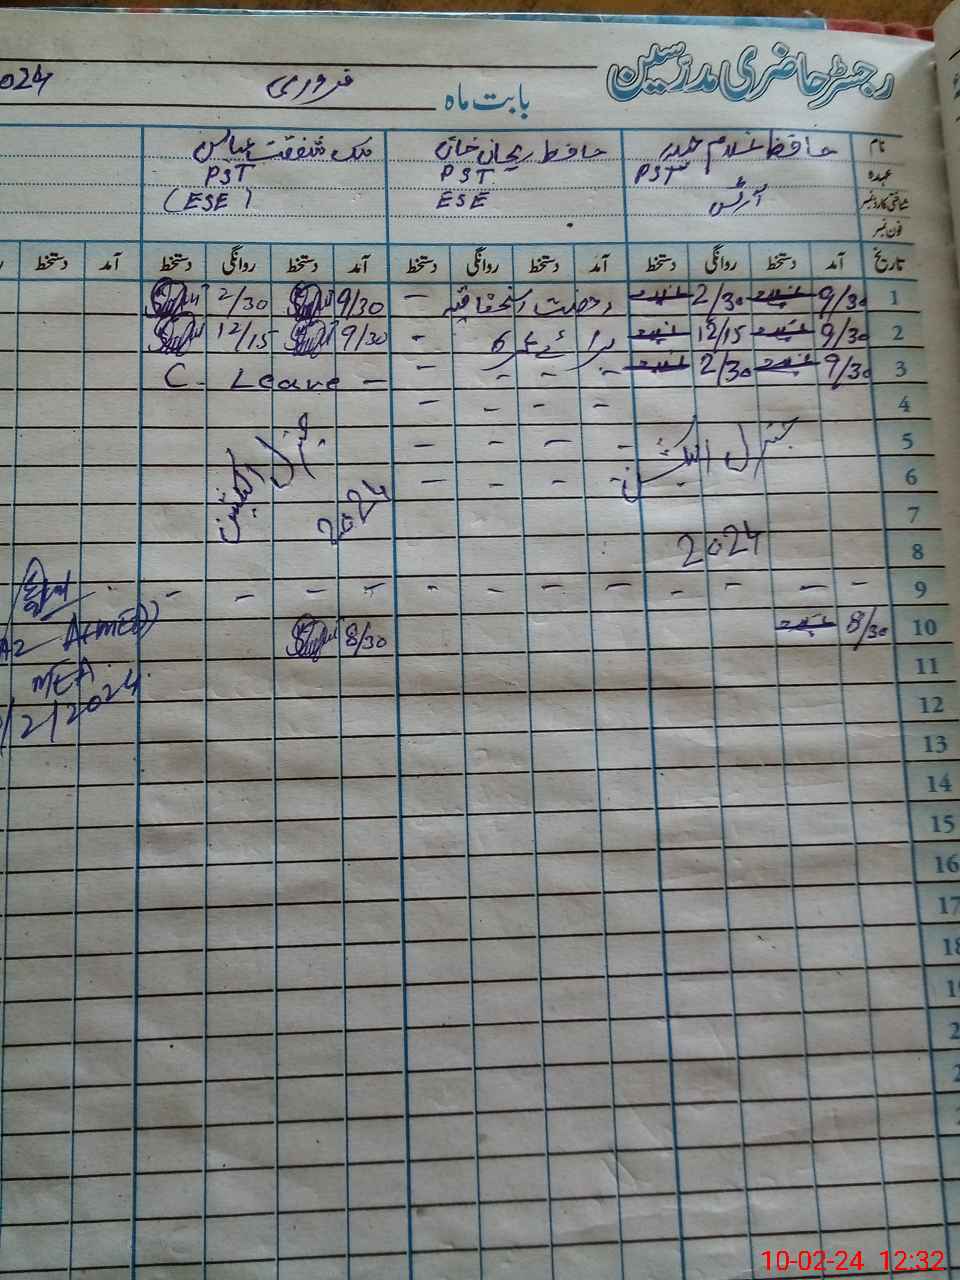 رجسٹر حاضری مدرسین
بابت ماہ فروری 2024
نام حافظ غلام حیدر حافظ ریحان خان ملک شفقت عباس
عہدہ PST PST PST
شناختی کارڈ نمبر آرٹس ESE (ESE)
فون نمبر
تاریخ آمد دستخط روانگی دستخط آمد دستخط روانگی دستخط آمد دستخط روانگی دستخط آمد دستخط
1 9/30 2/30 رخصت - 9/30 2/30
2 9/30 12/15 - 9/30 12/15
3 9/30 2/30 - - - - C. Leave -
4 - - - -
5 جنرل الیکشن - - - - جنرل الیکشن
6 - - - -
7 2024
8 2024
9 - - - - - - - - - - - -
10 8/30 8/30 AHMED
11 MEA
12 /2/2024
13
14
15
16
17
18
10-02-24 12:32